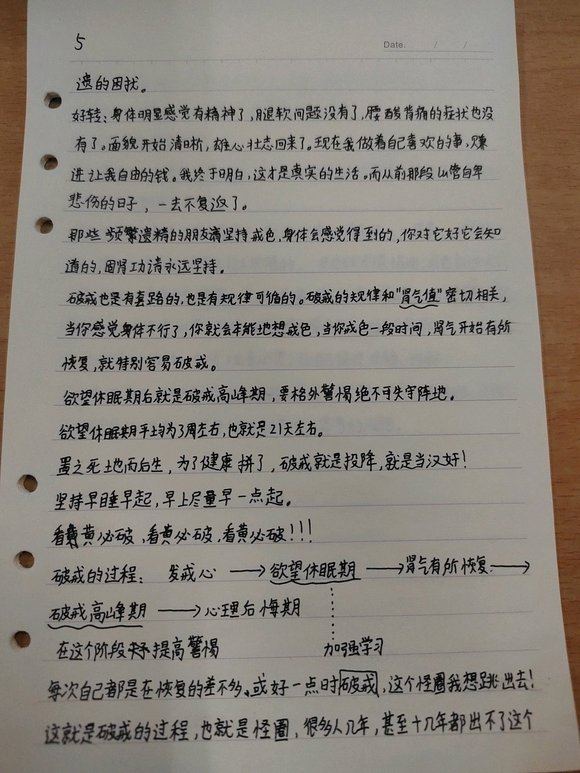 5
Date. / /
遗的困扰。
好转:身体明显感觉有精神了,腿软问题没有了,腰酸背痛的症状也没
有了。面貌开始清晰,雄心壮志回来了。现在我做着自己喜欢的事,赚
进让我自由的钱。我终于明白,这才是真实的生活。而从前那段自卑
悲伤的日子,一去不复返了。
那些频繁遗精的朋友请坚持戒色,身体会感觉得到的,你对它好它会知
道的,固肾功请永远坚持。
破戒也是有套路的,也是有规律可循的。破戒的规律和"肾气值"密切相关,
当你感觉身体不行了,你就会本能地想戒色,当你戒色一段时间,肾气开始有所
恢复,就特别容易破戒。
欲望休眠期后就是破戒高峰期,要格外警惕绝不可失守阵地。
欲望休眠期平均为3周左右,也就是21天左右。
置之死地而后生,为了健康拼了,破戒就是投降,就是当汉奸!
坚持早睡早起,早上尽量早一点起。
看黄必破,看黄必破,看黄必破!!!
破戒的过程: 发戒心 → 欲望休眠期 → 肾气有所恢复 →
破戒高峰期 → 心理后悔期
在这个阶段要提高警惕 加强学习
每次自己都是在恢复的差不多、或好一点时破戒,这个怪圈我想跳出去!
这就是破戒的过程,也就是怪圈,很多人几年,甚至十几年都出不了这个